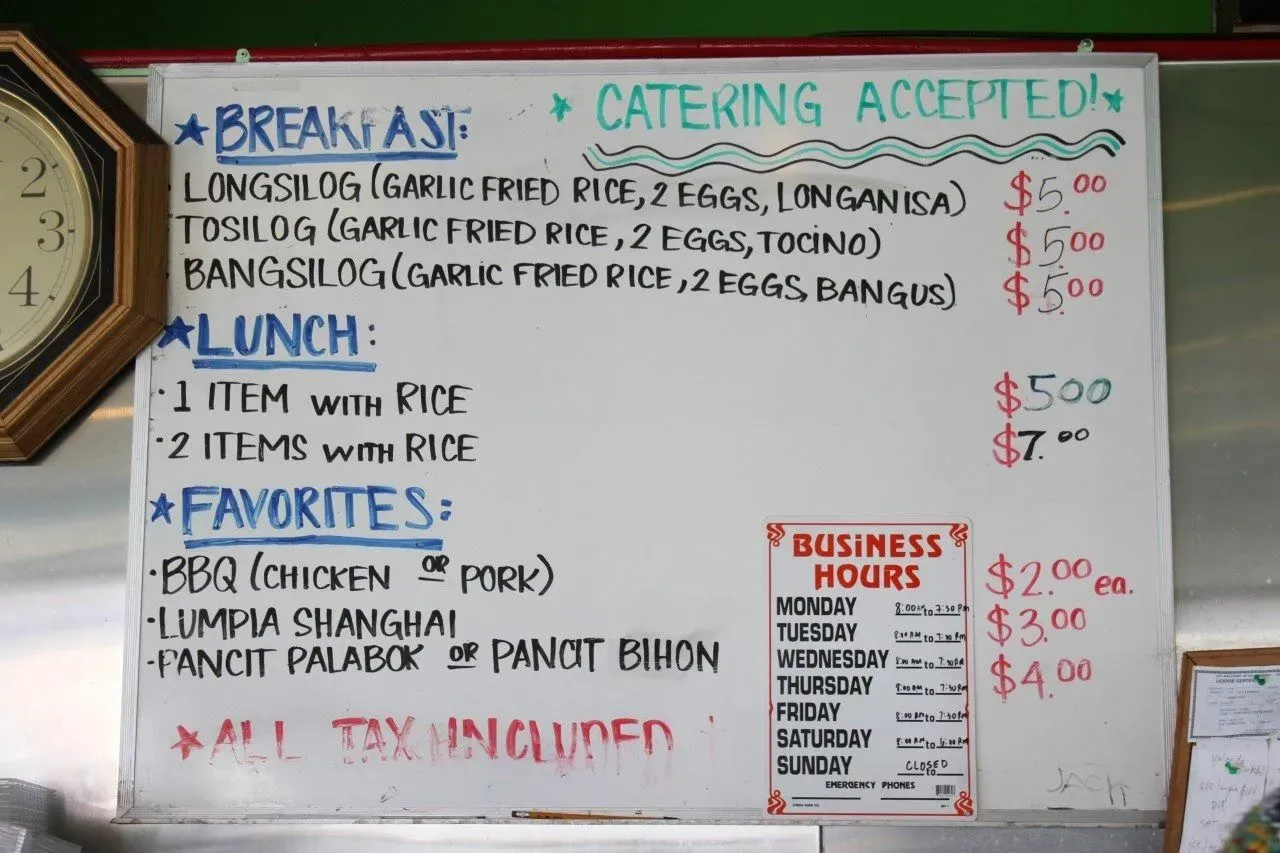 ★ CATERING ACCEPTED! ★
★ BREAKFAST:
LONGSILOG (GARLIC FRIED RICE, 2 EGGS, LONGANISA) $5.00
TOSILOG (GARLIC FRIED RICE, 2 EGGS, TOCINO) $5.00
BANGSILOG (GARLIC FRIED RICE, 2 EGGS, BANGUS) $5.00
★ LUNCH:
· 1 ITEM WITH RICE $500
· 2 ITEMS WITH RICE $7.00
★ FAVORITES:
· BBQ (CHICKEN OR PORK) $2.00 ea.
· LUMPIA SHANGHAI $3.00
· PANCIT PALABOK OR PANCIT BIHON $4.00
★ ALL TAX INCLUDED !
BUSINESS
HOURS
MONDAY 8:00 AM to 7:30 PM
TUESDAY 8:00 AM to 7:30 PM
WEDNESDAY 8:00 AM to 7:30 PM
THURSDAY 8:00 AM to 7:30 PM
FRIDAY 8:00 AM to 7:30 PM
SATURDAY 8:00 AM to 6:00 PM
SUNDAY CLOSED to
EMERGENCY PHONES
JACK
2
3
4